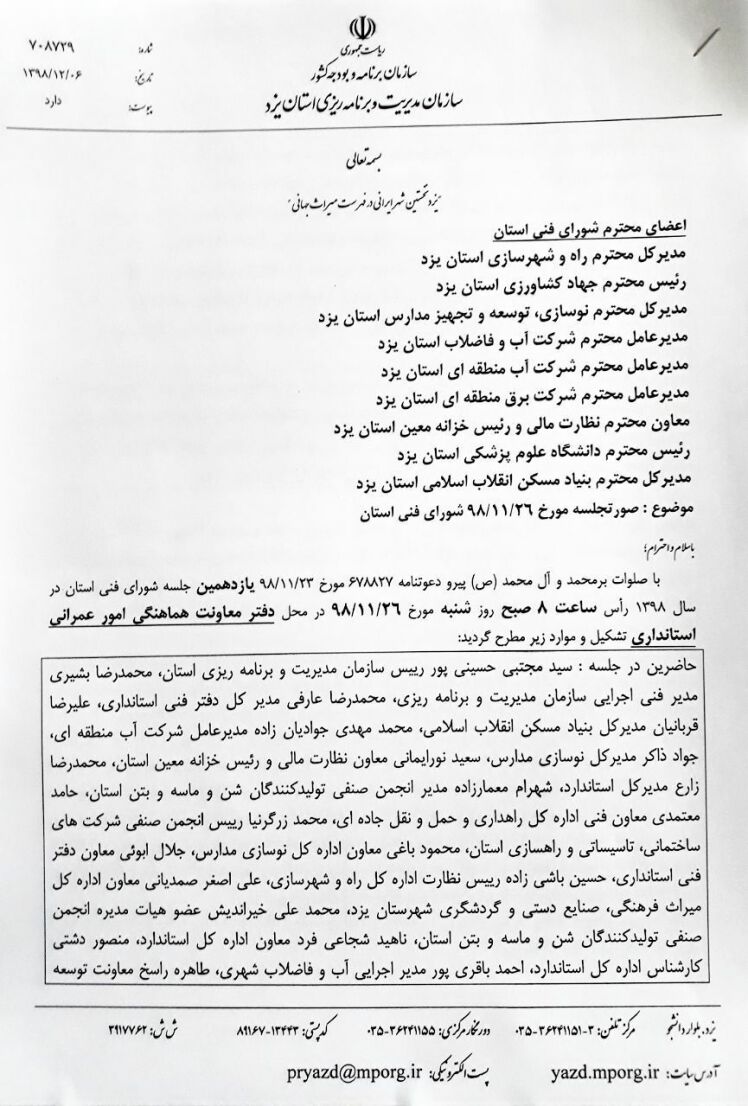 ریاست جمهوری
سازمان برنامه و بودجه کشور
سازمان مدیریت و برنامه ریزی استان یزد
شماره: ۷۰۸۷۲۹
تاریخ: ۱۳۹۸/۱۲/۰۶
پیوست: دارد
بسمه تعالی
"یزد نخستین شهر ایرانی در فهرست میراث جهانی"
اعضای محترم شورای فنی استان
مدیرکل محترم راه و شهرسازی استان یزد
رئیس محترم جهاد کشاورزی استان یزد
مدیرکل محترم نوسازی، توسعه و تجهیز مدارس استان یزد
مدیرعامل محترم شرکت آب و فاضلاب استان یزد
مدیرعامل محترم شرکت آب منطقه ای استان یزد
مدیرعامل محترم شرکت برق منطقه ای استان یزد
معاون محترم نظارت مالی و رئیس خزانه معین استان یزد
رئیس محترم دانشگاه علوم پزشکی استان یزد
مدیرکل محترم بنیاد مسکن انقلاب اسلامی استان یزد
موضوع : صورتجلسه مورخ ۹۸/۱۱/۲۶ شورای فنی استان
باسلام و احترام؛
با صلوات برمحمد و آل محمد (ص) پیرو دعوتنامه ۶۷۸۸۲۷ مورخ ۹۸/۱۱/۲۳ یازدهمین جلسه شورای فنی استان در
سال ۱۳۹۸ رأس ساعت ۸ صبح روز شنبه مورخ ۹۸/۱۱/۲۶ در محل دفتر معاونت هماهنگی امور عمرانی
استانداری تشکیل و موارد زیر مطرح گردید:
حاضرین در جلسه : سید مجتبی حسینی پور رییس سازمان مدیریت و برنامه ریزی استان، محمدرضا بشیری
مدیر فنی اجرایی سازمان مدیریت و برنامه ریزی، محمدرضا عارفی مدیر کل دفتر فنی استانداری، علیرضا
قربانیان مدیرکل بنیاد مسکن انقلاب اسلامی، محمد مهدی جوادیان زاده مدیرعامل شرکت آب منطقه ای،
جواد ذاکر مدیرکل نوسازی مدارس، سعید نورایمانی معاون نظارت مالی و رئیس خزانه معین استان، محمدرضا
زارع مدیرکل استاندارد، شهرام معمارزاده مدیر انجمن صنفی تولیدکنندگان شن و ماسه و بتن استان، حامد
معتمدی معاون فنی اداره کل راهداری و حمل و نقل جاده ای، محمد زرگرنیا رییس انجمن صنفی شرکت های
ساختمانی، تاسیساتی و راهسازی استان، محمود باغی معاون اداره کل نوسازی مدارس، جلال ابوئی معاون دفتر
فنی استانداری، حسین باشی زاده رییس نظارت اداره کل راه و شهرسازی، علی اصغر صمدیانی معاون اداره کل
میراث فرهنگی، صنایع دستی و گردشگری شهرستان یزد، محمد علی خیراندیش عضو هیات مدیره انجمن
صنفی تولیدکنندگان شن و ماسه و بتن استان، ناهید شجاعی فرد معاون اداره کل استاندارد، منصور دشتی
کارشناس اداره کل استاندارد، احمد باقری پور مدیر اجرایی آب و فاضلاب شهری، طاهره راسخ معاونت توسعه
یزد. بلوار دانشجو مرکز تلفن: ۳-۳۶۲۴۱۱۵۱-۰۳۵ دورنگار مرکزی: ۳۶۲۴۱۱۵۵-۰۳۵ کدپستی: ۱۳۴۴۳-۸۹۱۶۷ ش ش: ۳۹۱۷۷۶۲
آدرس سایت: yazd.mporg.ir پست الکترونیکی: pryazd@mporg.ir